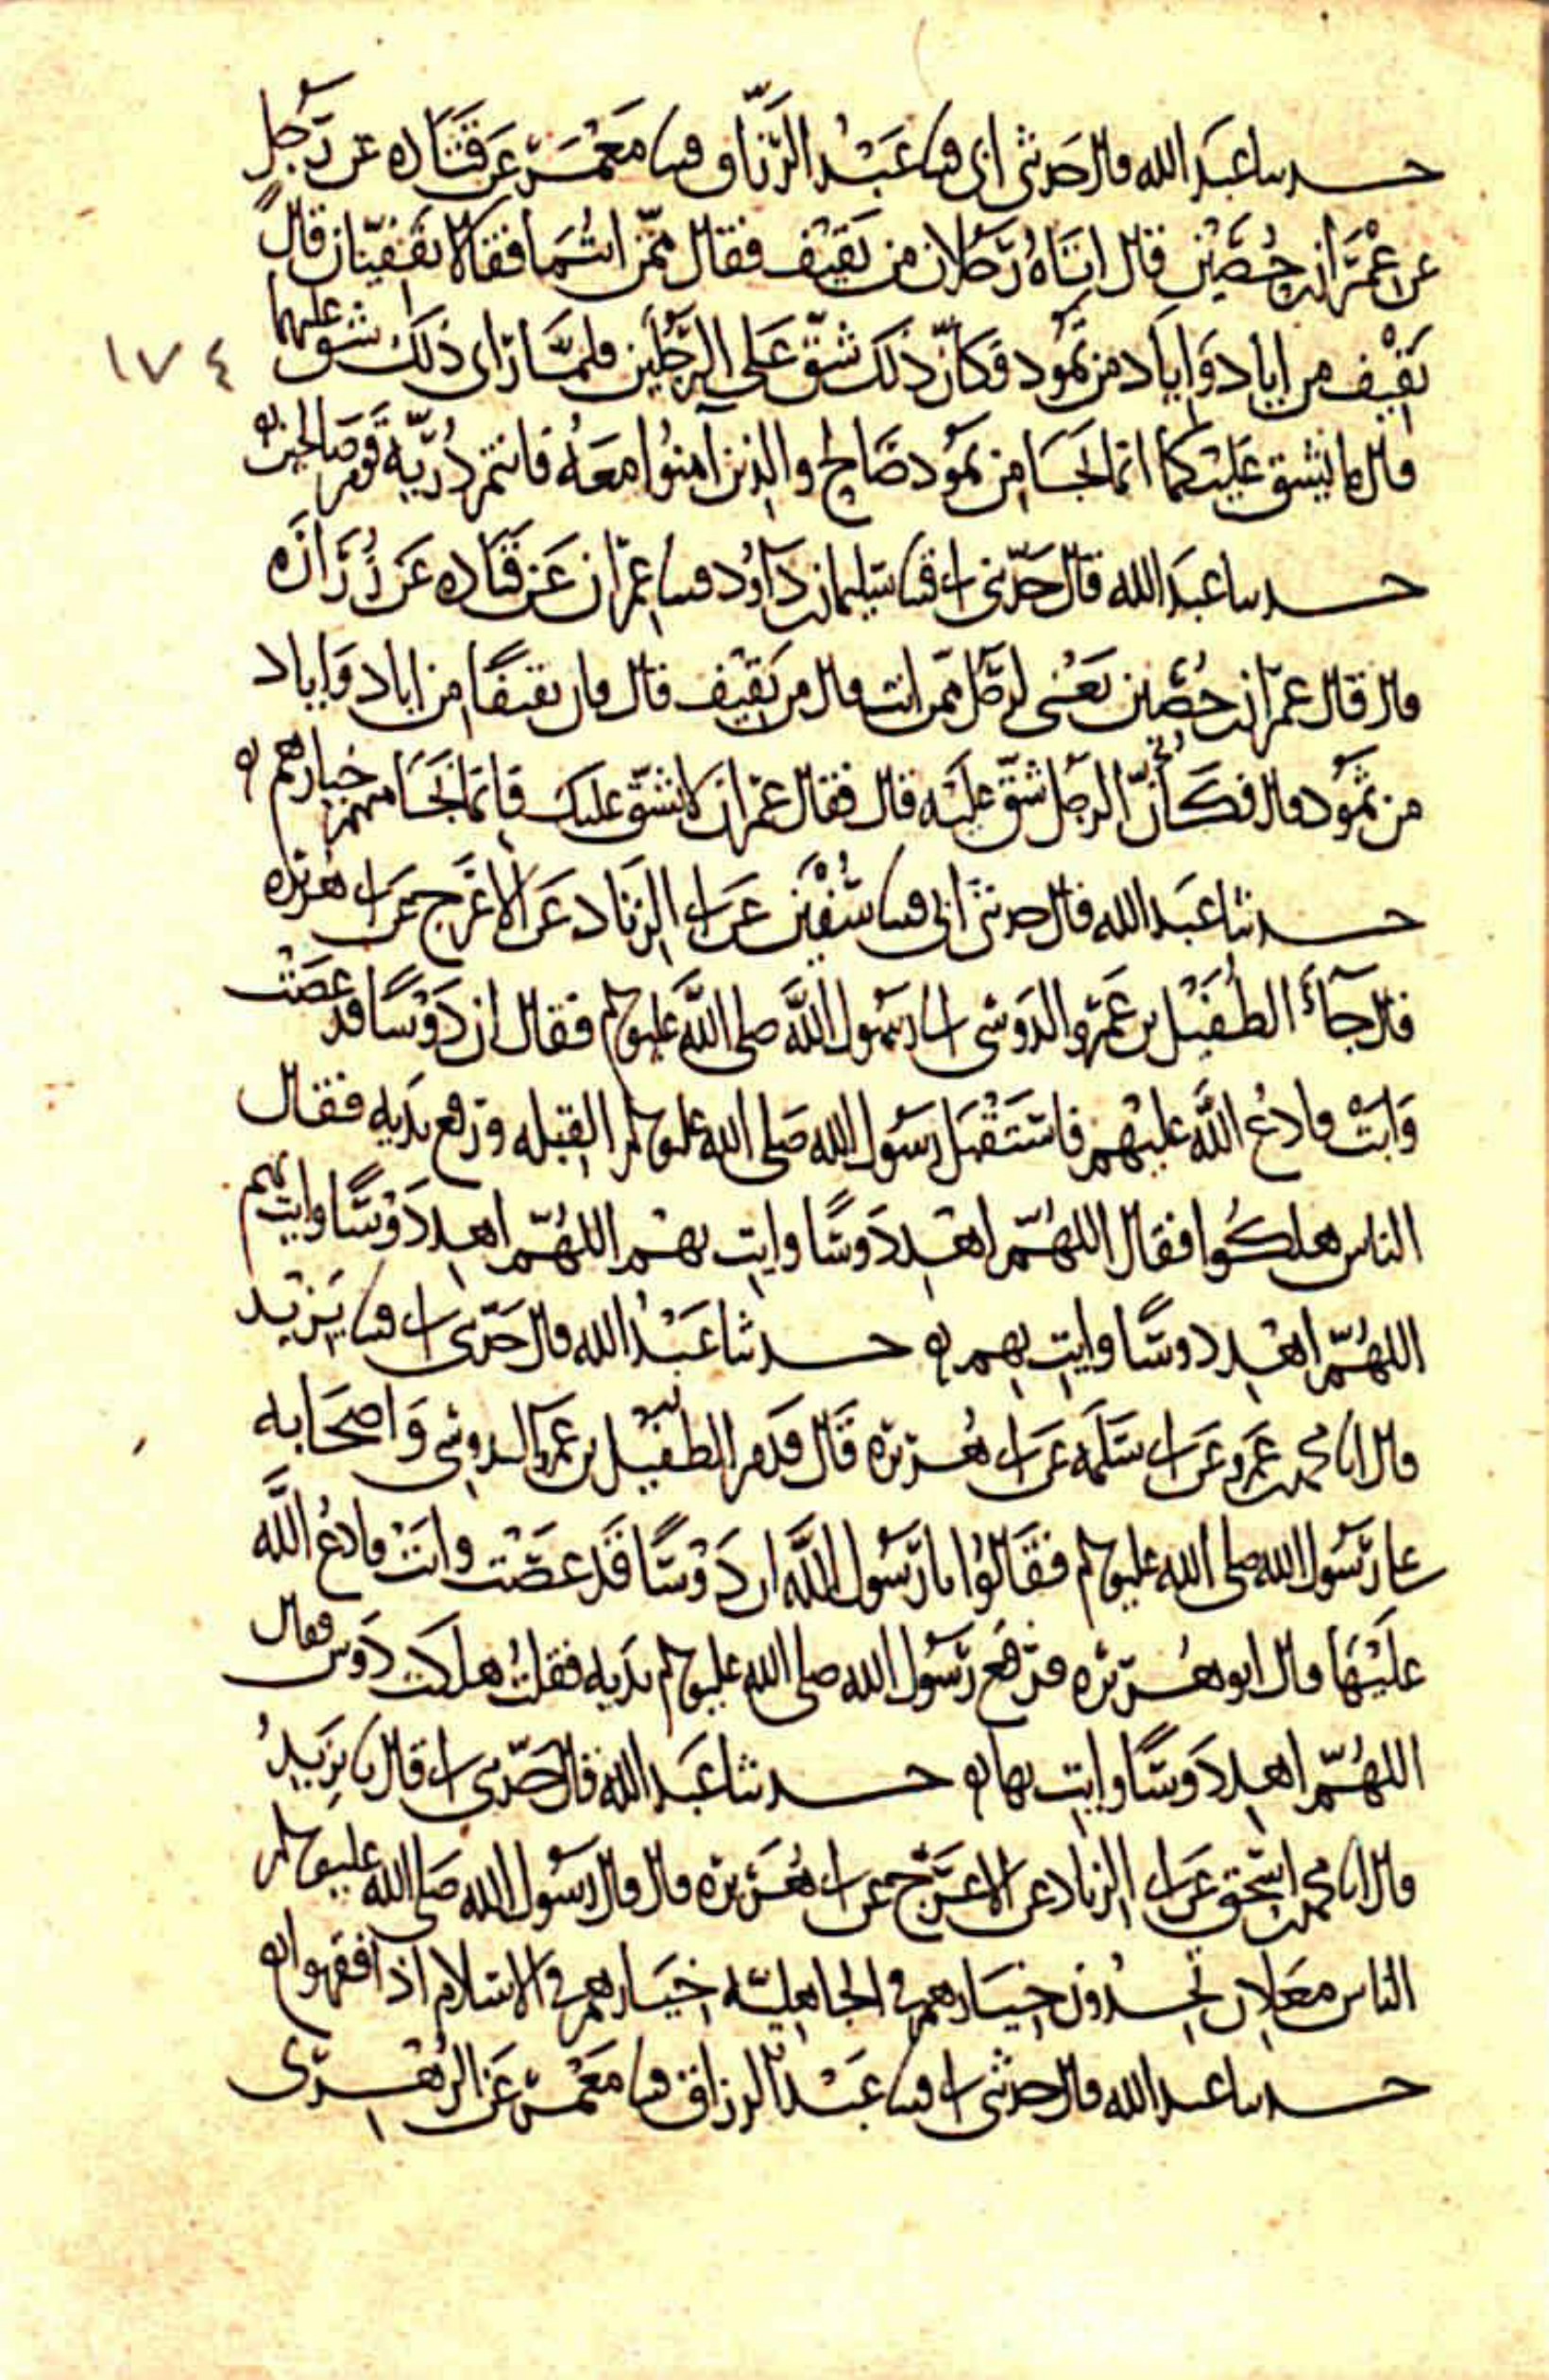 حدثنا عبد الله قال حدثني ابي قثنا عَبْدُ الرَّزَّاق قثنا مَعْمَر عَن قَتَاده عن رَجُلٍ
عن عِمْرَان بن حُصَيْن قال اتاهُ رَجُلان من ثقيف فقال ممّن انتُمَا فقالا ثَقَفيّان قال
ثَقِيْف من اياد وَاياد من ثَمُود فكأنّ ذلك شقّ عَلى الرَّجُلَين فلمّا رَاى ذَلك شق عليهما
١٧٤
قال ما يشق عَلَيْكما انما نجَا من ثمَود صَالح والذين آمنُوا معَهُ فانتم ذُرّيّة قوم صَالحين
حدثنا عبَد الله قال حَدّثني ابي قثنا سُليمان بن دَاوُد قثنا عِمْرَان عَن قَتَاده عَن زُرَارَه
قال قال عمْرَان بن حُصَين يَعْنى لرجُل ممّن انت قال من ثَقيْف قال فان ثقيفًا من اياد وَاياد
من ثمُود قال فكَأنّ الرجل شقّ عليَه قال فقال عمْرَان لا يشقّ عليك فإنما نجَا منهم خيارهم
حدثنا عبَد الله قال حدثنى ابى قثنا سُفْيَن عَن ابي الزنَاد عَن الاعْرَج عن ابي هُرَيْرَه
قال جآءَ الطُفَيْل بن عَمْرو الدَوْسي الى رسُول اللَّه صلى اللَّه عليه وسلم فقال ان دَوْسًا قد عَصَتْ
وَابَتْ فادعُ اللَّه عليْهم فاستَقْبَل رسُول الله صَلى الله عليه وسلم القِبْله ورفع يدَيه فقال
الناس هلكُوا فقال اللهُمّ اهْدِ دَوسًا وايتِ بهم اللهُمّ اهدِ دَوْسًا وايتِ بهم
اللهُمّ اهْدِ دوسًا وايتِ بهم حدثنا عَبْدُ الله قال حَدّثني ابي قثنا يَزيْد
قال انا محمد بن عَمرو عَن ابي سَلَمَه عَن ابي هُرَيرَه قَال قدَم الطفَيْل بن عَمرو الدوسي وَاصحَابه
على رَسُول الله صلى الله عليه وسلم فقَالُوا يا رَسُول اللَّه ان دَوْسًا قَد عصَتْ وابَتْ فادعُ اللَّه
علَيْهَا قال ابو هُرَيْرَه فرَفَع رَسُول الله صلى الله عليه وسلم يدَيه فقلتُ هلكَت دَوس فقال
اللهُمّ اهدِ دَوسًا وايتِ بها حدثنا عبَد الله قال حَدّثني ابي قال نا يزَيدُ
قال انا محمد بن اسْحق عَن ابي الزناد عن الاعْرَج عن ابي هُرَيْرَه قال قال رسُول الله صَلى الله عليه وسلم
الناس معَادن تجدُون خيَارهم في الجاهليّه خيَارهم في الاسلام اذا فقهوا
حدثنا عبد الله قال حدثني ابي قثنا عَبْدُ الرزاق قثنا مَعْمَر عَن الزُهْرى